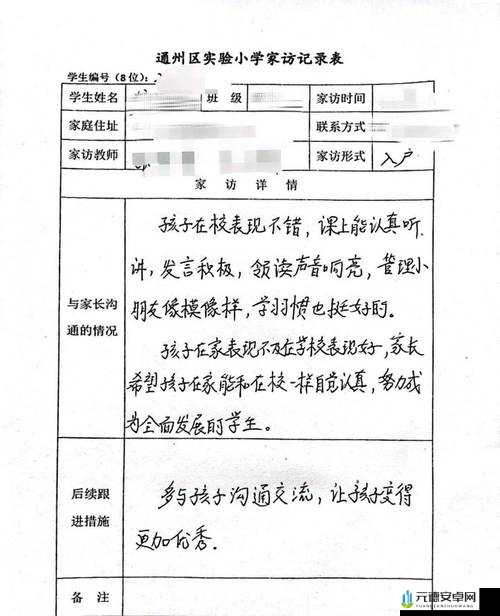 通州区实验小学家访记录表
学生编号（8位）：
学生姓名 班 级 家访时间
家庭住址 联系方式
家访教师 家访形式 入户
家 访 详 情
与家长沟通的情况
孩子在校表现不错，课上能认真听
讲，发言积极，领读声音响亮，管理小
朋友像模像样，学习惯也挺好的。
孩子在家表现不及在学校表现好，家长
希望孩子在家能和在校一样自觉认真，努力成
为全面发展的学生。
后续跟进措施
多与孩子沟通交流，让孩子变得
更加优秀。
备 注
元德安卓网